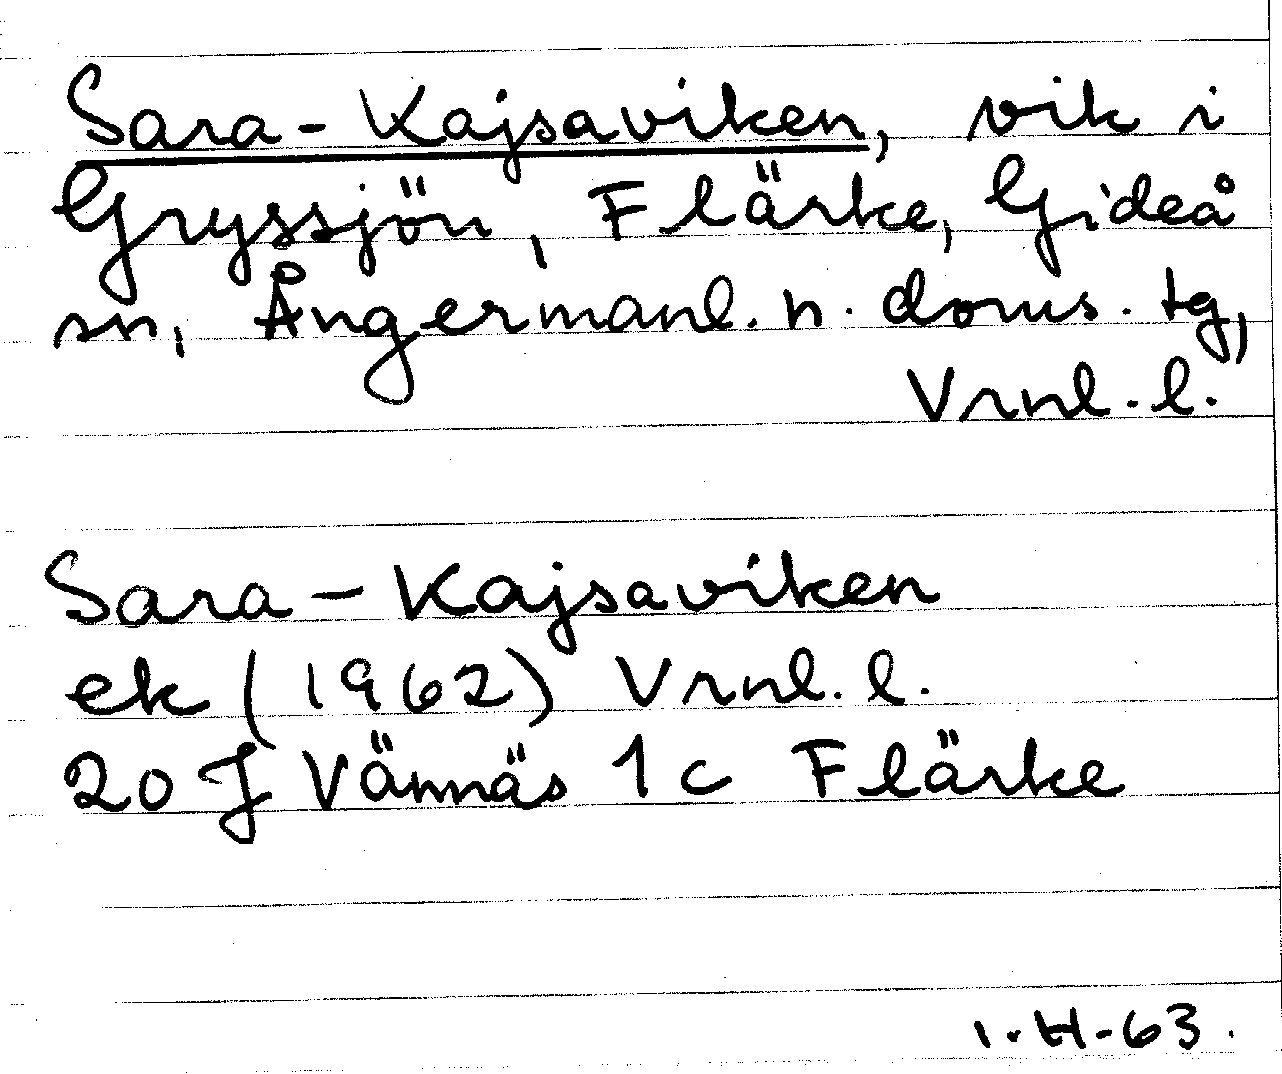 Sara-Kajsaviken, vik i
Gryssjön, Flärke, Gideå
sn, Ångermanl. n. doms. tg,
Vrnl. l.
Sara-Kajsaviken
ek (1962) Vrnl. l.
20 J Vännäs 1 c Flärke
I.H-63.